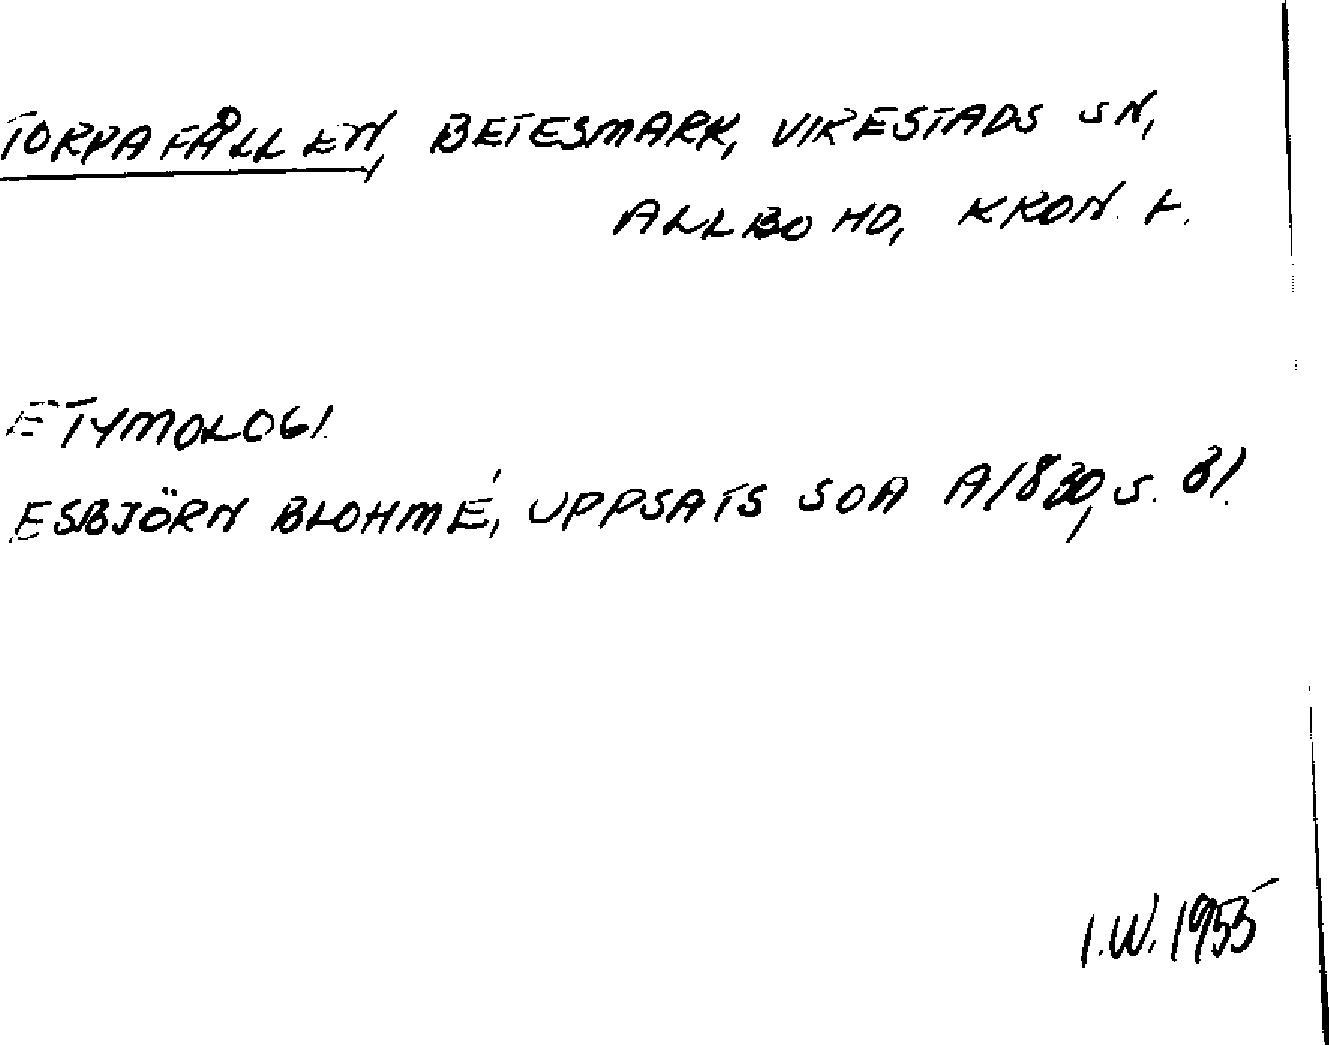 TORPAFÅLLEN, BETESMARK, VIRESTADS SN,
ALLBO HD, KRON. L.
ETYMOLOGI.
ESBJÖRN BLOHMÉ, UPPSATS SOA A/830, S. 81.
I.W. 1955